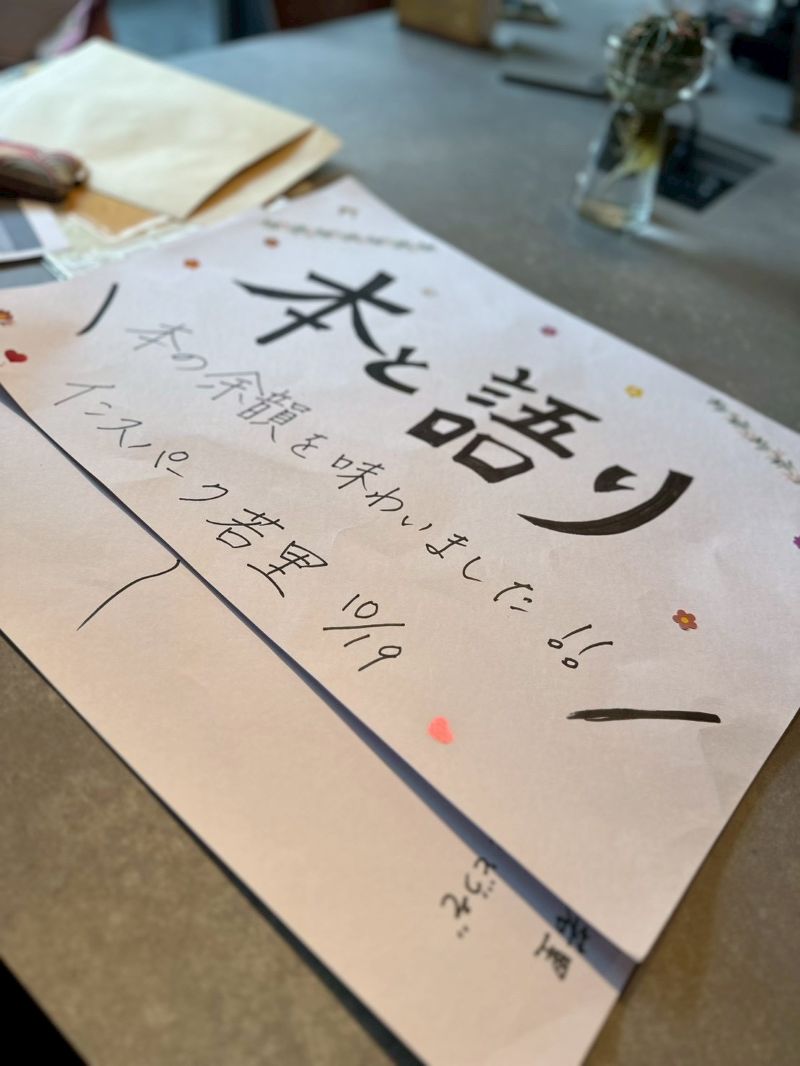 本と語り
本の余韻を味わいました!!
インスパーク若里
10/19